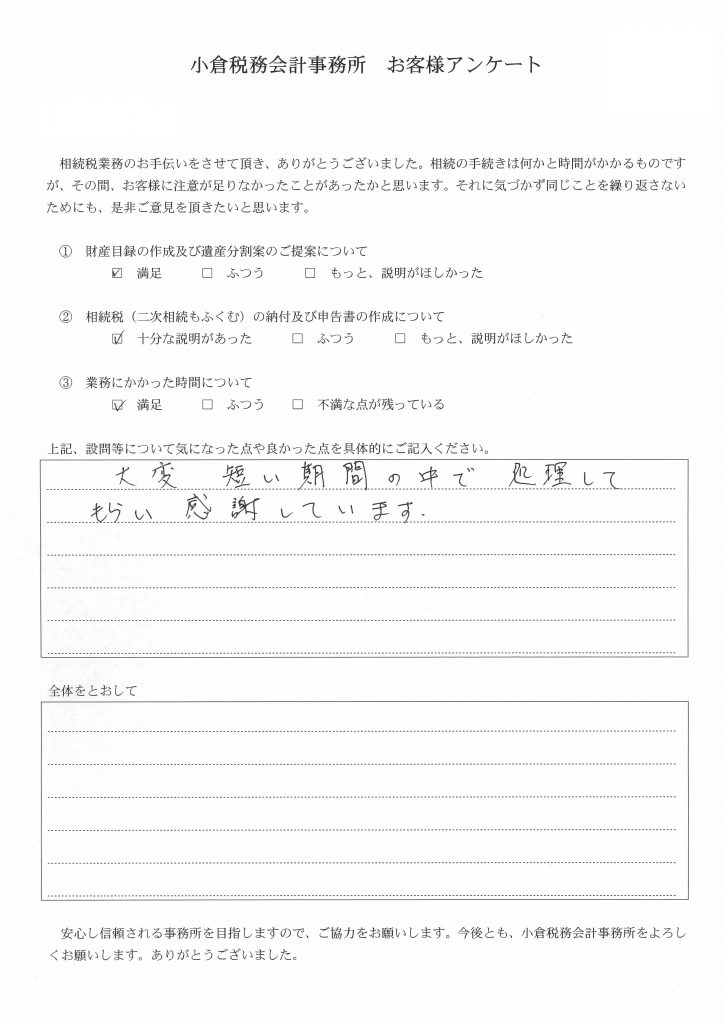 小倉税務会計事務所　お客様アンケート
相続税業務のお手伝いをさせて頂き、ありがとうございました。相続の手続きは何かと時間がかかるものです
が、その間、お客様に注意が足りなかったことがあったかと思います。それに気づかず同じことを繰り返さない
ためにも、是非ご意見を頂きたいと思います。
①　財産目録の作成及び遺産分割案のご提案について
☑　満足　　□　ふつう　　□　もっと、説明がほしかった
②　相続税（二次相続もふくむ）の納付及び申告書の作成について
☑　十分な説明があった　　□　ふつう　　□　もっと、説明がほしかった
③　業務にかかった時間について
☑　満足　　□　ふつう　　□　不満な点が残っている
上記、設問等について気になった点や良かった点を具体的にご記入ください。
大変　短い期間の中で　処理して
もらい　感謝しています.
全体をとおして
安心し信頼される事務所を目指しますので、ご協力をお願いします。今後とも、小倉税務会計事務所をよろし
くお願いします。ありがとうございました。